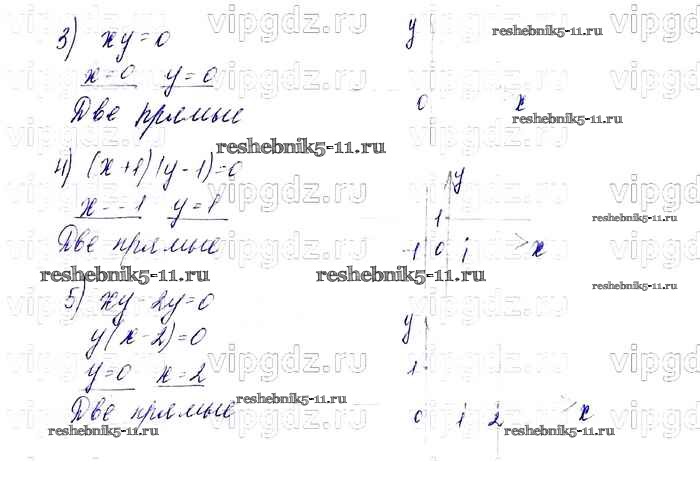 3) xy=0
x=0 y=0
Две прямые
4) (x+1)(y-1)=0
x=-1 y=1
Две прямые
5) xy-2y=0
y(x-2)=0
y=0 x=2
Две прямые
y
0 x
y
1
-1 0 1 x
y
1
0 1 2 x
vipgdz.ru
reshebnik5-11.ru